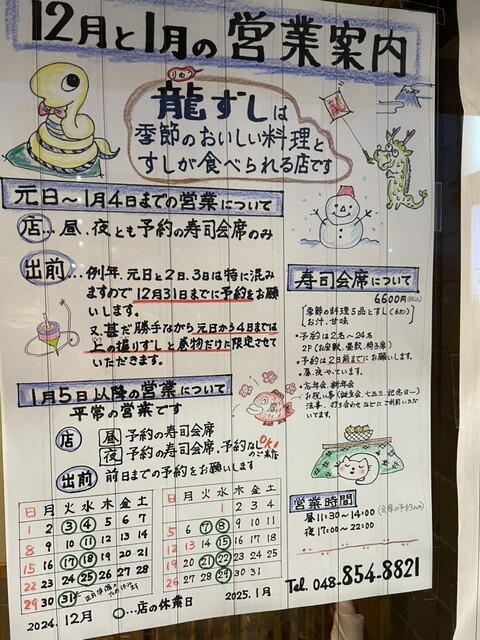 12月と1月の営業案内
りゅう
龍ずしは
季節のおいしい料理と
すしが食べられる店です
龍
元日～1月4日までの営業について
店…昼、夜とも予約の寿司会席のみ
出前…例年、元日と2日、3日は特に混み
ますので12月31日までに予約をお願
いします。
又、甚だ勝手ながら元日から4日までは
上の握りずしと巻物だけに限定させて
いただきます。
1月5日以降の営業について
平常の営業です
店 昼 予約の寿司会席
夜 予約の寿司会席、予約なしOK!
のご来店
出前 前日までの予約をお願いします
寿司会席について
6,600円(税込)
季節の料理5品とすし(6カン)
お汁、甘味
・予約は2名～24名
2F(お座敷、畳敷、椅子席)
・予約は2日前までにお願いします。
・昼、夜やっています。
・忘年会、新年会
お祝い事(誕生会、七五三、記念日～)
法事、打ち合わせなどにご利用いただ
いてます。
営業時間
昼11:30～14:00(会席の予約のみ)
夜17:00～22:00
Tel. 048-854-8821
日 月 火 水 木 金 土
1 2 3 4 5 6 7
8 9 10 11 12 13 14
15 16 17 18 19 20 21
22 23 24 25 26 27 28
29 30 31
正月準備の為休みです
2024. 12月
○…店の休業日
日 月 火 水 木 金 土
1 2 3 4
5 6 7 8 9 10 11
12 13 14 15 16 17 18
19 20 21 22 23 24 25
26 27 28 29 30 31
2025. 1月